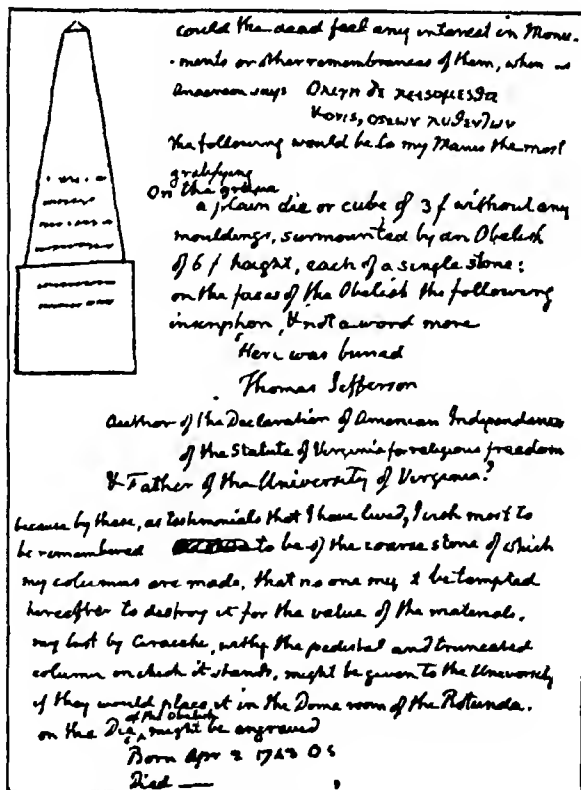 could the dead feel any interest in Monu-
-ments or other remembrances of them, when as
Anacreon says Ολιγη δε κεισομεσθα
Κονις, οστεων λυθεντων
the following would be to my Manes the most
gratifying
On the grave
a plain die or cube of 3 f without any
mouldings, surmounted by an Obelisk
of 6 f height, each of a single stone:
on the faces of the Obelisk the following
inscription, & not a word more
"Here was buried
Thomas Jefferson
Author of the Declaration of American Independance
of the Statute of Virginia for religious freedom
& Father of the University of Virginia."
because by these, as testimonials that I have lived, I wish most to
be remembered to be of the coarse stone of which
my columns are made, that no one might be tempted
hereafter to destroy it for the value of the materials.
my bust by Ciracchi, with the pedestal and truncated
column on which it stands, might be given to the University
if they would place it in the Dome room of the Rotunda.
on the Die of the Obelisk might be engraved
Born Apr 2 1743 O S
Died —